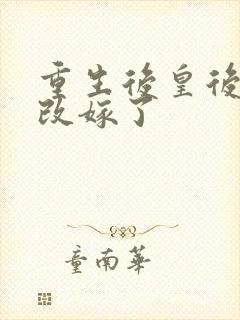 重生後皇後
改嫁了
童南華